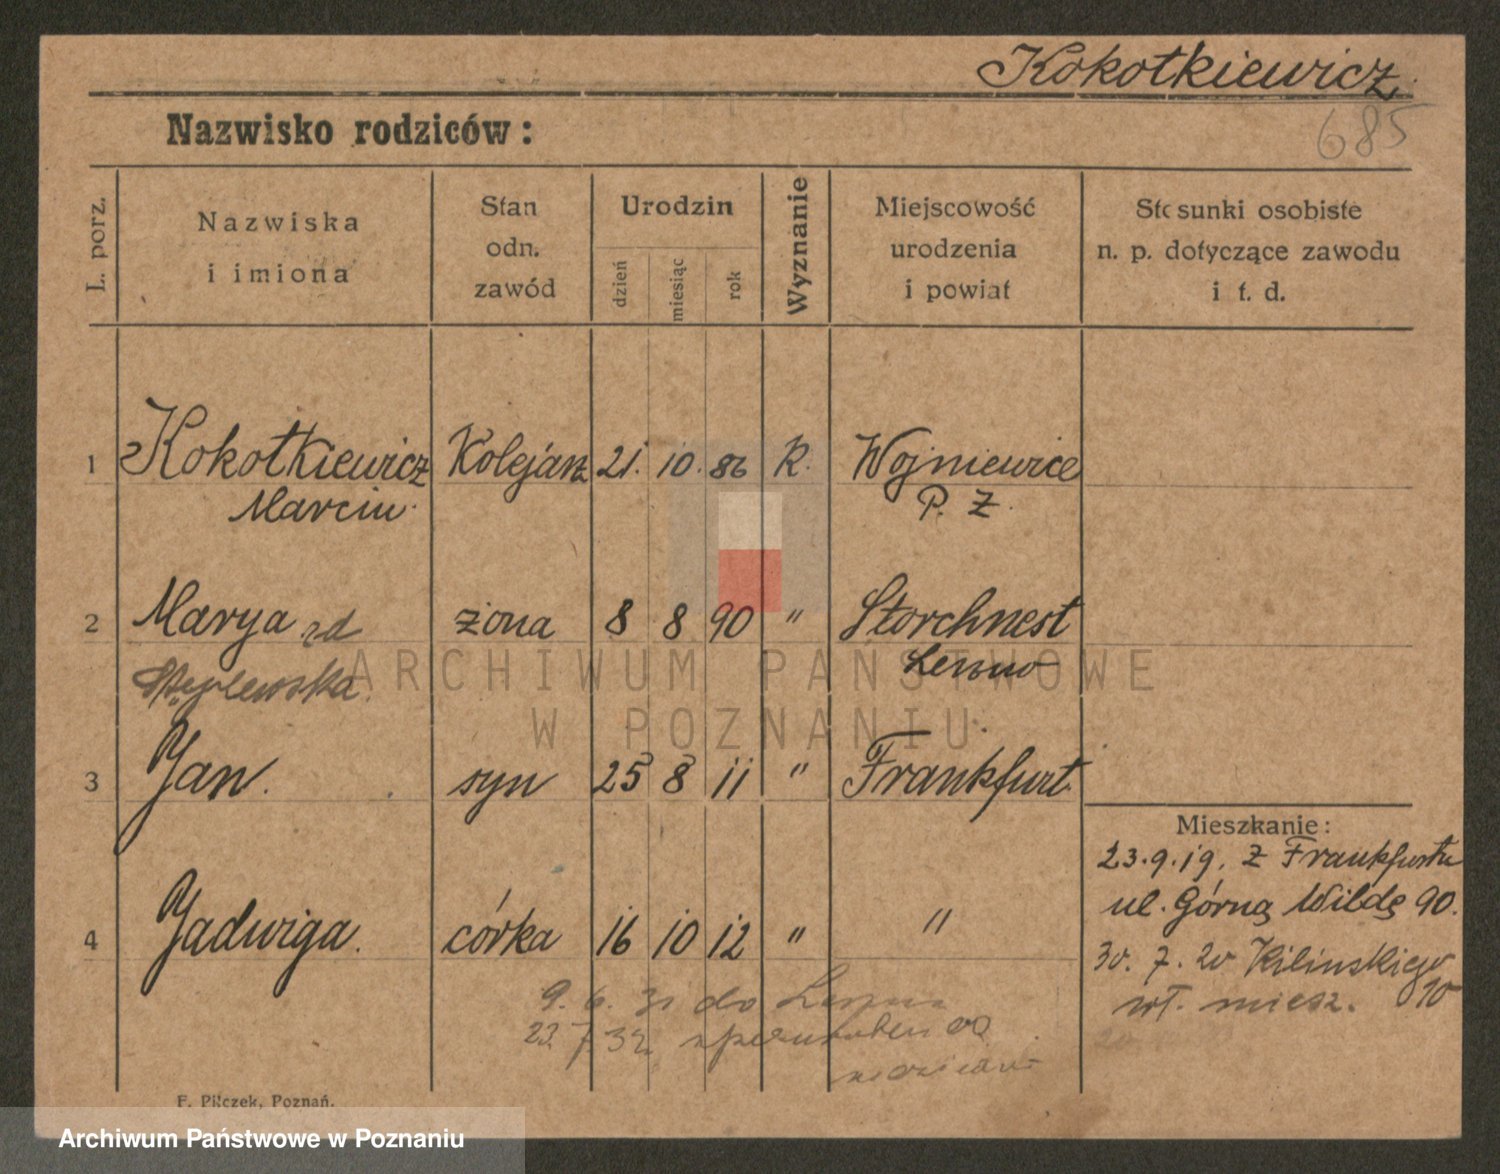 Kokotkiewicz.
685
Nazwisko rodziców:
L. porz.
Nazwiska
i imiona
Stan
odn.
zawód
Urodzin
dzień
miesiąc
rok
Wyznanie
Miejscowość
urodzenia
i powiat
Stosunki osobiste
n. p. dotyczące zawodu
i t. d.
1 Kokotkiewicz Kolejarz 21. 10. 86 K. Wojniewice
Marcin P. Ż.
2 Marya rd żona 8 8 90 " Storchnest
Leszno
3 Jan. syn 25 8 11 " Frankfurt.
Mieszkanie:
23.9.19. z Frankfurtu
ul. Górną Wildę 90.
4 Jadwiga. córka 16 10 12 " "
30. 7. 20 Kilinskiego
wł. miesz. 10
9. 6. 31 do Leszna
23. 7. 32.
F. Pilczek, Poznań.
ARCHIWUM PAŃSTWOWE
W POZNANIU
Archiwum Państwowe w Poznaniu